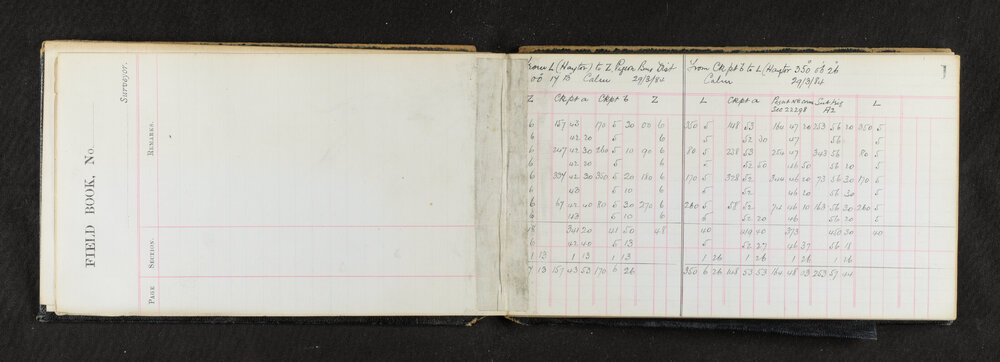 FIELD BOOK, No.
Surveyor.
REMARKS.
SECTION.
PAGE
From L (Hayter) to Z, Pigeon Box Dist
0 6 17 13 Calm 29/3/84
Z Ckpt a Ckpt b Z
6 157 43 170 5 30 00 6
6 42 20 5 6
6 247 42 30 260 5 10 90 6
6 42 20 5 6
6 337 42 30 350 5 20 180 6
6 43 5 10 6
6 67 42 40 80 5 30 270 6
6 43 5 10 6
48 341 20 41 50 48
6 42 40 5 13
1 13 1 13 1 13
7 13 157 43 53 170 6 26
From Ckpt b to L (Hayter 350° 06' 26"
Calm 29/3/84
L Ckpt a A2 L
350 5 148 53 164 47 20 253 56 20 350 5
5 52 30 47 56 5
80 5 238 53 254 47 343 56 80 5
5 52 50 46 50 56 20 5
170 5 328 52 344 46 20 73 56 30 170 5
5 52 46 20 56 30 5
260 5 58 52 74 46 10 163 56 30 260 5
5 52 20 46 56 20 5
40 419 40 373 450 30 40
5 52 27 46 37 56 18
1 26 1 26 1 26 1 26
350 6 26 148 53 53 164 48 03 253 57 44